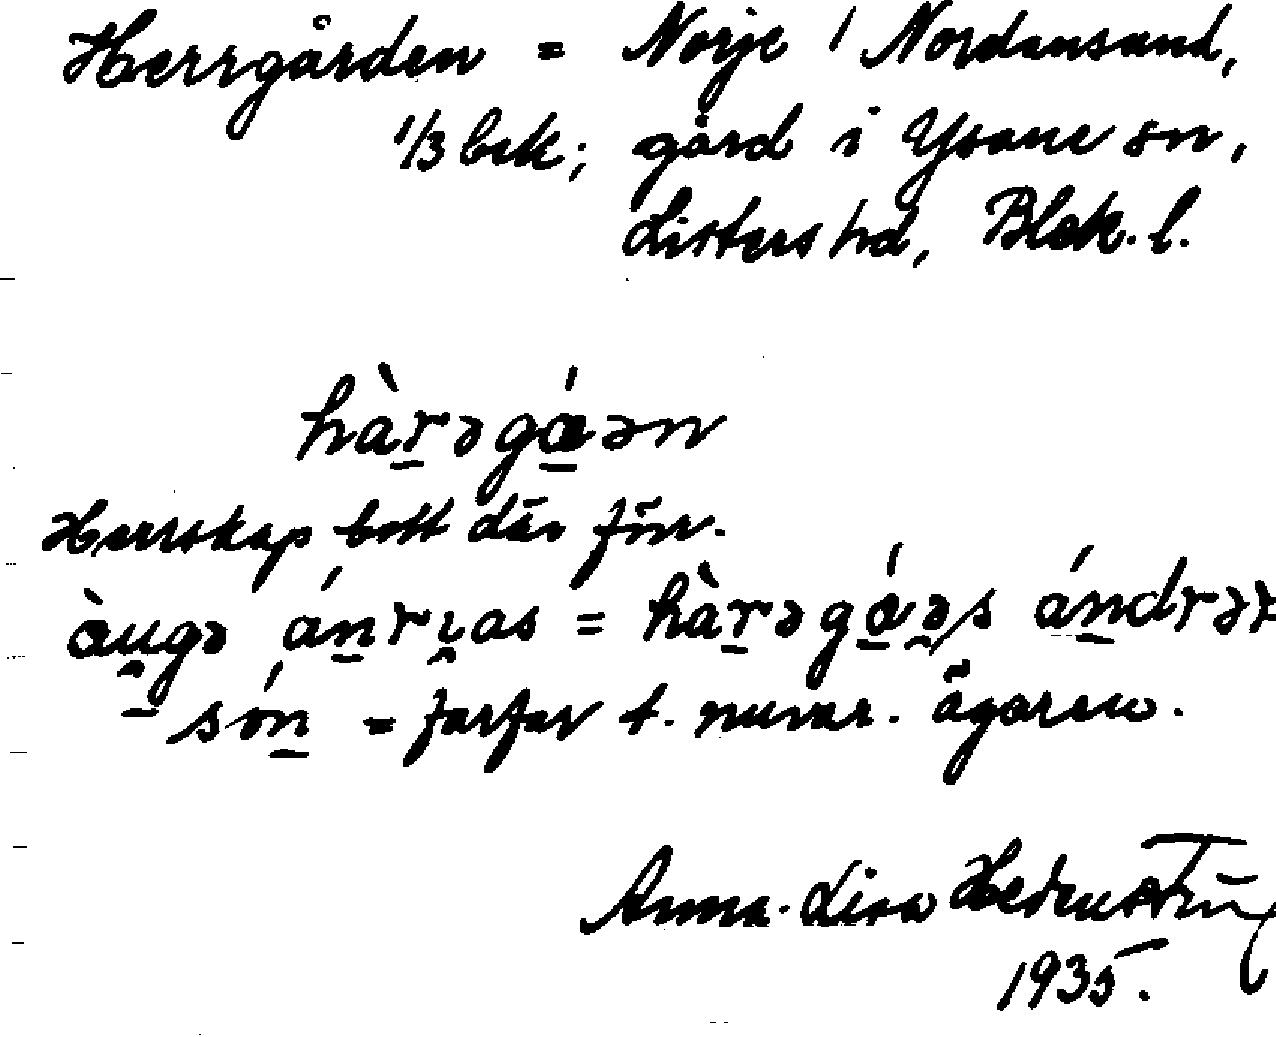 Herrgården = Norje / Nordansund,
1/3 bek; gård i Ysane sn,
Listers hd, Blek. l.
hàr̠əgɑ̠́ən
Herrskap bott där förr.
ɑ̀u̠gə án̠ri̯as = hàr̠əgɑ̠́ə̯s án̠drər
són̠ = farfar t. nuvar. ägaren.
Anna-Lisa
1935.